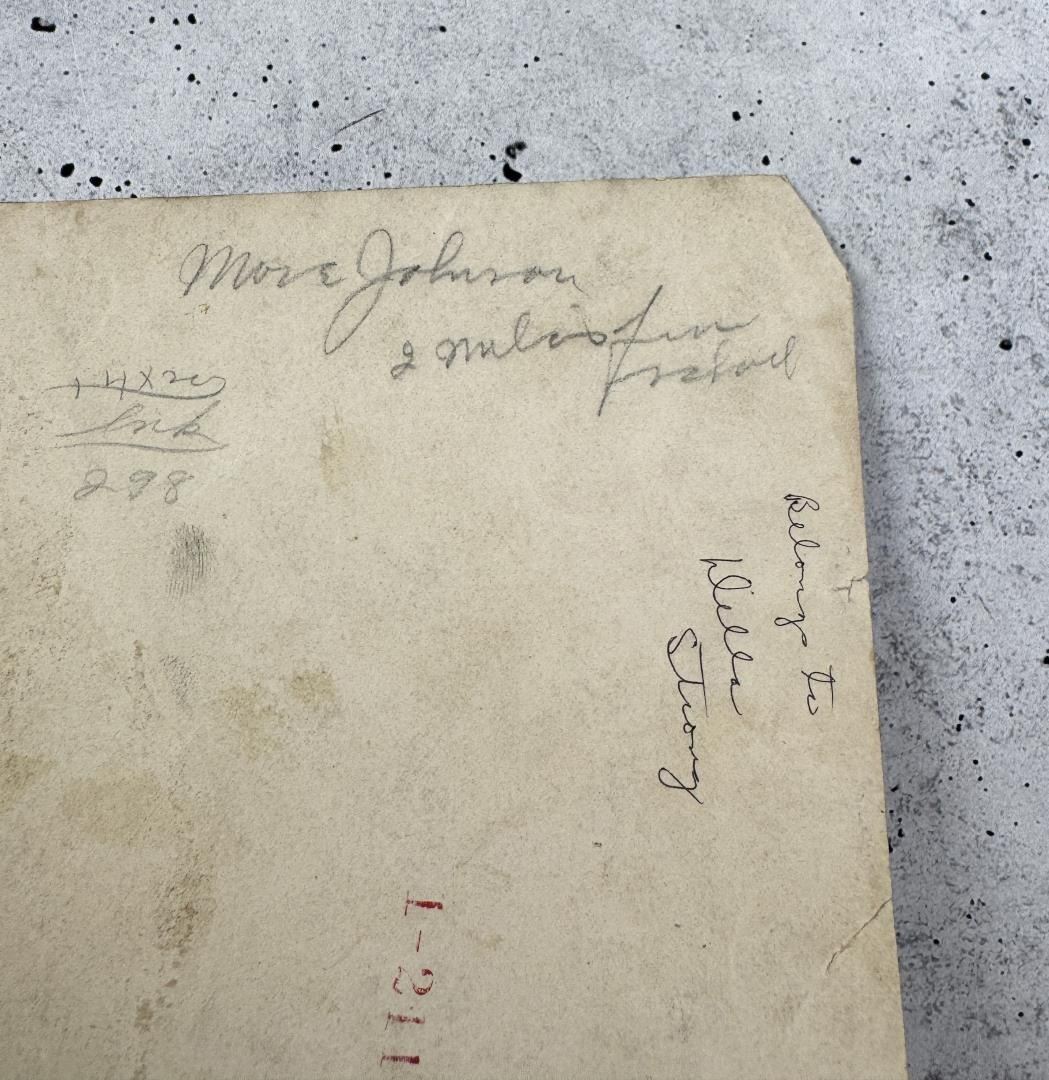 Mose Johnson
2 miles from
Ink
298
Belong to
Della
Strong
1-211